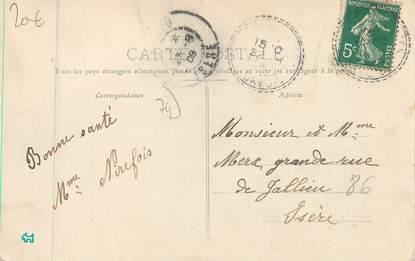 20€
CARTE POSTALE
Tous les pays étrangers n'acceptent pas la correspondance au recto (se renseigner à la poste)
Correspondance
Adresse
REPUBLIQUE FRANÇAISE
5c
POSTES
15
09
ISERE
74)
Bonne santé
Mme Nirefois
Monsieur et Mme
Merz grande rue
de Jallieu 86
Isère